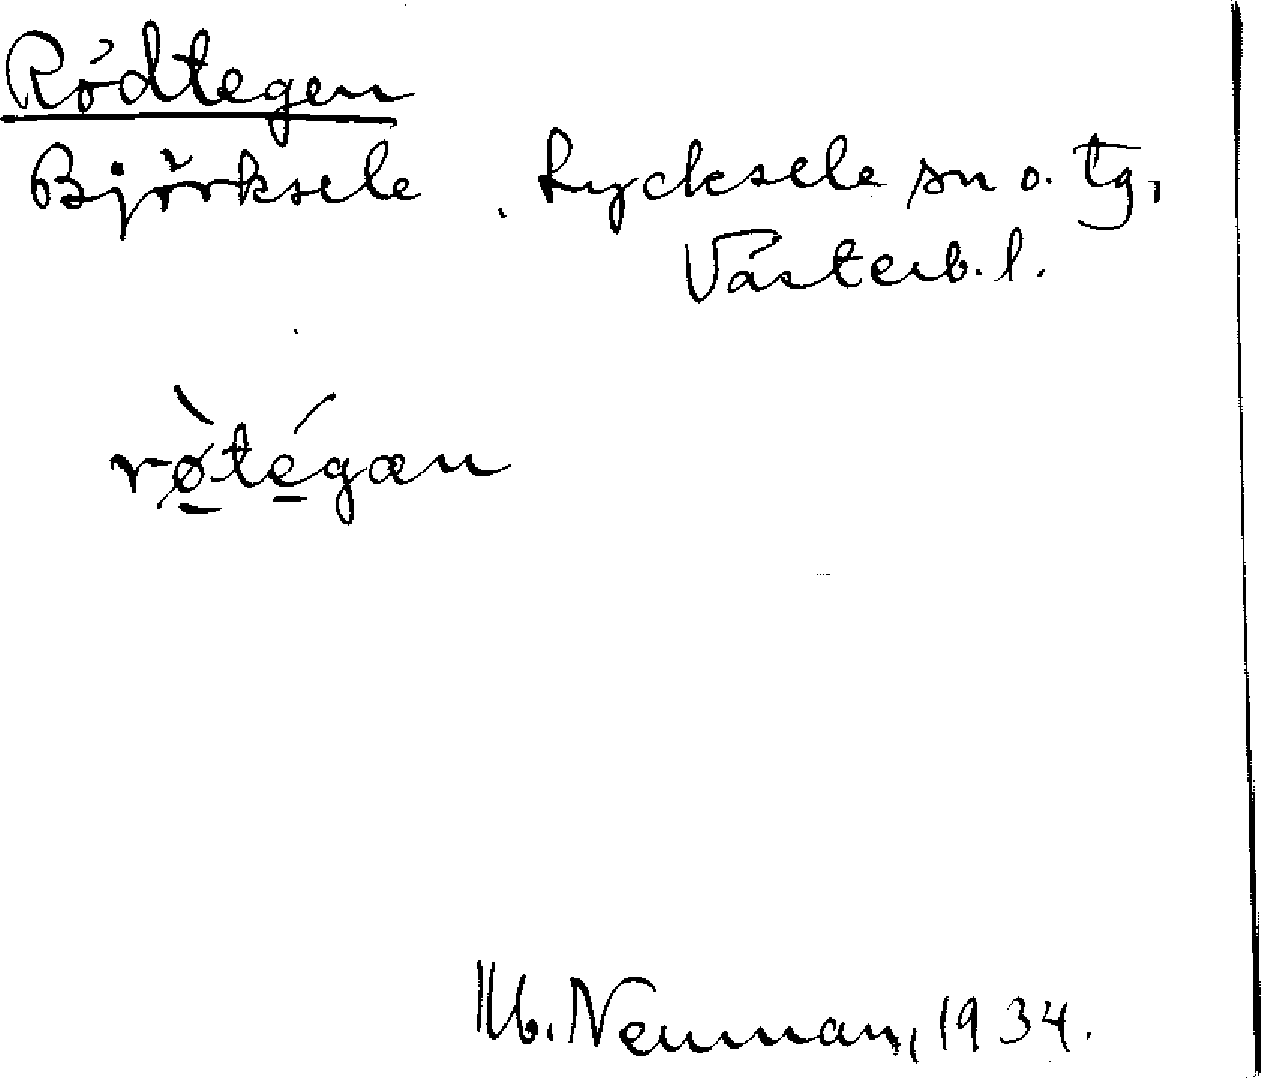 Rödtegen
Björksele Lycksele sn o. tg,
Västerb. l.
rø̀tégæn
Neuman, 1934.